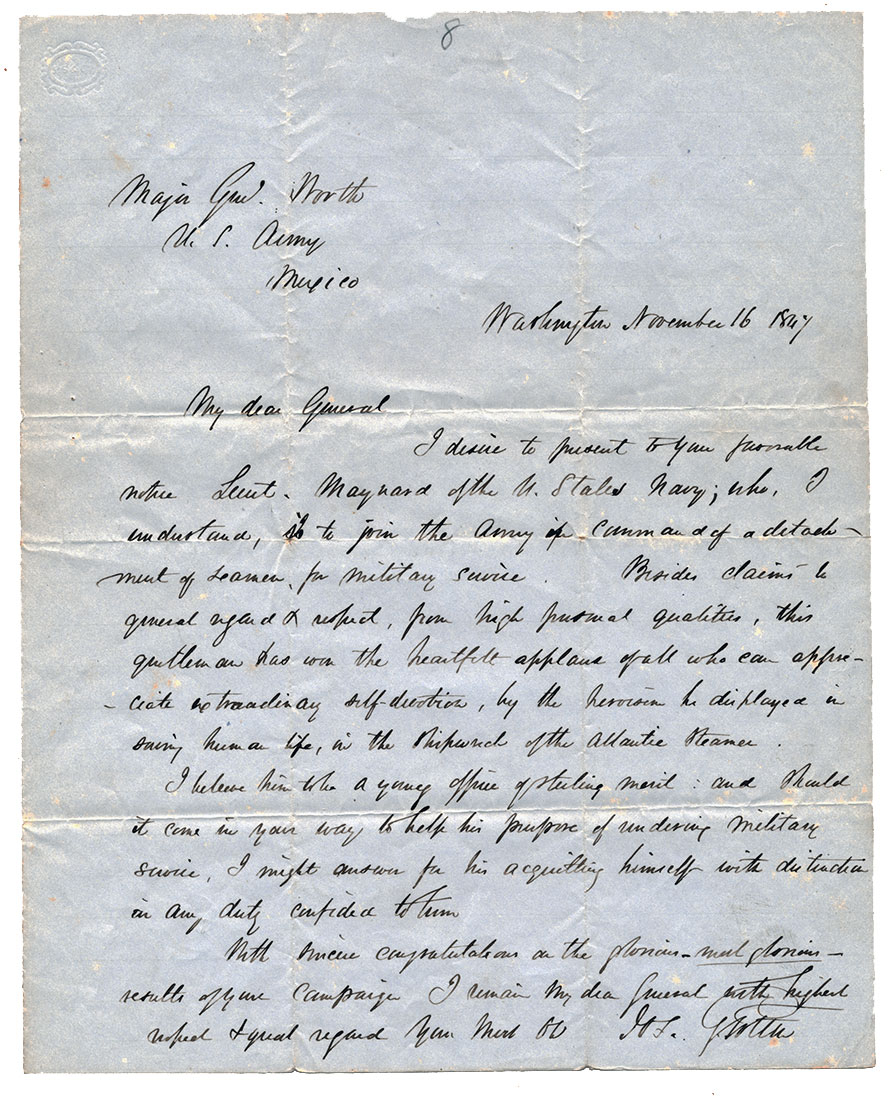 8
Major Genl. Worth
U. S. Army
Mexico
Washington November 16 1847
My dear General
I desire to present to your favorable
notice Lieut. Maynard of the U. States Navy; who, I
understand, is to join the Army in command of a detach-
ment of seamen, for military service. Besides claims to
general regard & respect, from high personal qualities, this
gentleman has won the heartfelt applause of all who can appre-
-ciate extraordinary self-devotion, by the heroism he displayed in
saving human life, in the shipwreck of the Atlantic Steamer.
I believe him to be a young officer of sterling merit: and should
it come in your way to help his purpose of rendering military
service, I might answer for his acquitting himself with distinction
in any duty confided to him
With sincere congratulations on the glorious - most glorious -
results of your campaign I remain My dear General with highest
respect & great regard Your Most Ob